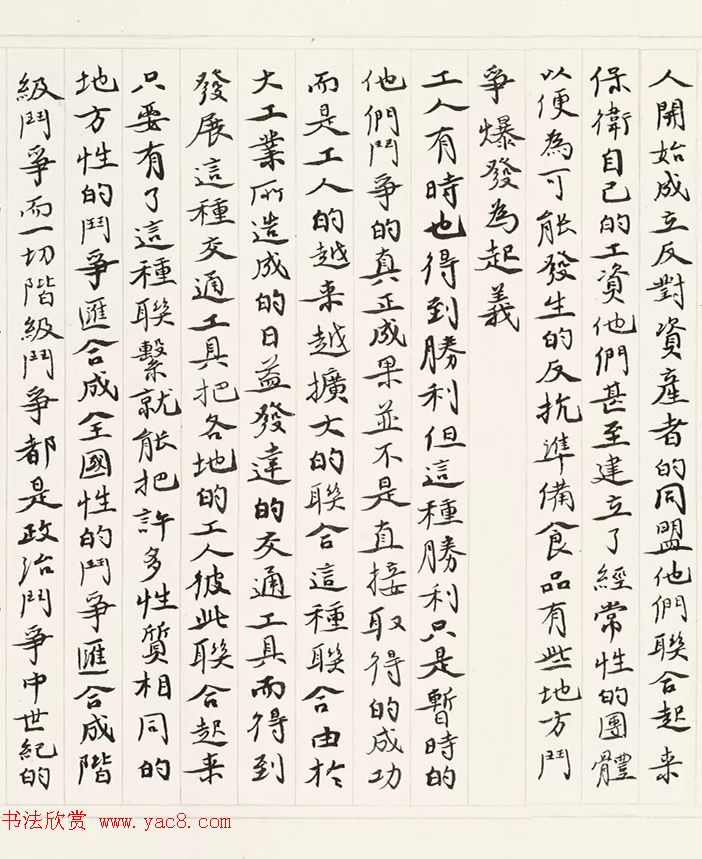 人開始成立反對資產者的同盟他們聯合起来
保衛自己的工資他們甚至建立了經常性的團體
以便為可能發生的反抗準備食品有些地方鬥
爭爆發為起義
工人有時也得到勝利但這種勝利只是暫時的
他們鬥爭的真正成果並不是直接取得的成功
而是工人的越来越擴大的聯合這種聯合由於
大工業所造成的日益發達的交通工具而得到
發展這種交通工具把各地的工人彼此聯合起来
只要有了這種聯繫就能把許多性質相同的
地方性的鬥爭匯合成全國性的鬥爭匯合成階
級鬥爭而一切階級鬥爭都是政治鬥爭中世紀的
书法欣赏 www.yac8.com